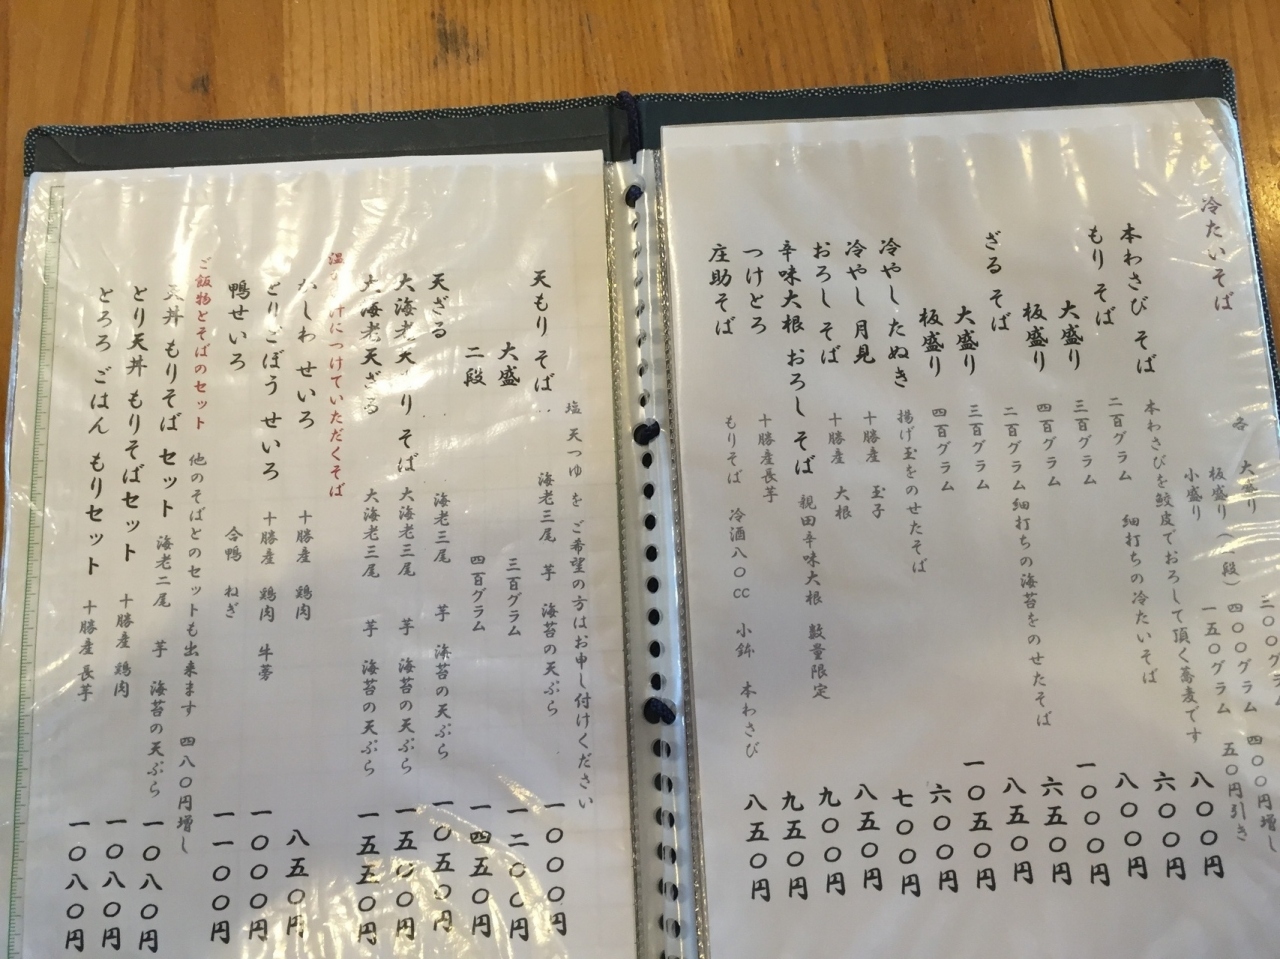 冷たいそば
各 大盛り 三〇〇グラム 二〇〇円増し
板盛り(一段) 四〇〇グラム 四〇〇円増し
小盛り 一五〇グラム 五〇円引き
本わさび そば 本わさびを鮫皮でおろして頂く蕎麦です 八〇〇円
もり そば 二百グラム 細打ちの冷たいそば 六〇〇円
大盛り 三百グラム 八〇〇円
板盛り 四百グラム 一〇〇〇円
ざる そば 二百グラム 細打ちの海苔をのせたそば 六五〇円
大盛り 三百グラム 八五〇円
板盛り 四百グラム 一〇五〇円
冷やし たぬき 揚げ玉をのせたそば 六〇〇円
冷やし 月見 十勝産 玉子 七〇〇円
おろし そば 十勝産 大根 八五〇円
辛味大根 おろし そば 親田辛味大根 数量限定 九〇〇円
つけとろ 十勝産長芋 九五〇円
庄助そば もりそば 冷酒八〇cc 小鉢 本わさび 八五〇円
塩 天つゆ を ご希望の方はお申し付けください
天もり そば 海老三尾 芋 海苔の天ぷら 一〇〇〇円
大盛 三百グラム 一二〇〇円
二段 四百グラム 一四五〇円
天ざる 海老三尾 芋 海苔の天ぷら 一〇五〇円
大海老天もり そば 大海老三尾 芋 海苔の天ぷら 一五〇〇円
大海老天ざる 大海老三尾 芋 海苔の天ぷら 一五五〇円
けにつけていただくそば
かしわ せいろ 十勝産 鶏肉 八五〇円
とりごぼう せいろ 十勝産 鶏肉 牛蒡 一〇〇〇円
鴨せいろ 合鴨 ねぎ 一一〇〇円
ご飯物とそばのセット 他のそばとのセットも出来ます 四八〇円増し
天丼 もりそば セット 海老二尾 芋 海苔の天ぷら 一〇八〇円
とり天丼 もりそばセット 十勝産 鶏肉 一〇八〇円
とろろ ごはん もりセット 十勝産 長芋 一〇八〇円